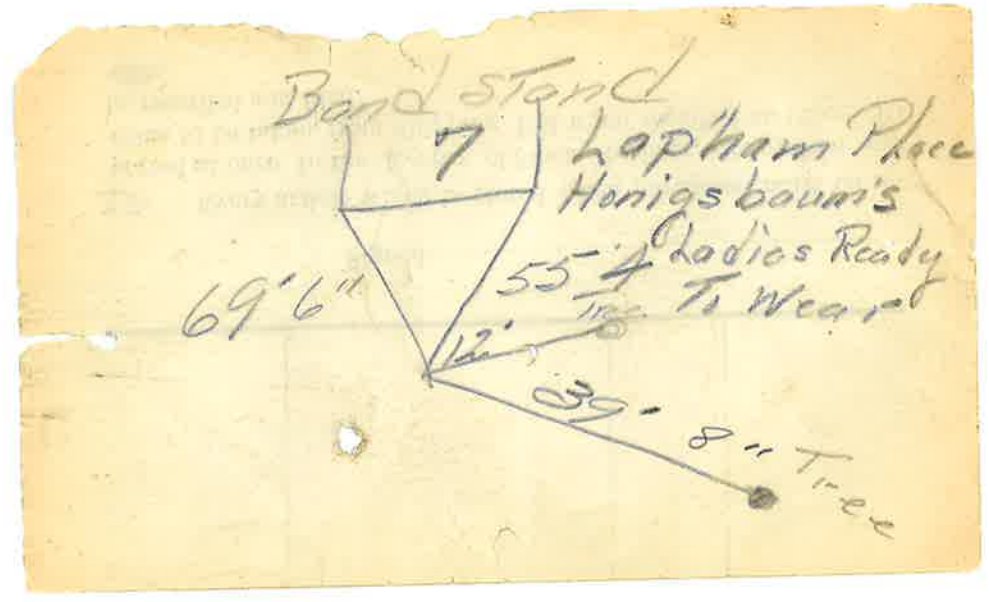 Band Stand
7
Lapham Place
Honigsbaum's
Ladies Ready
To Wear
69'6"
55'4
Tree
12'
39' 8"
Tree